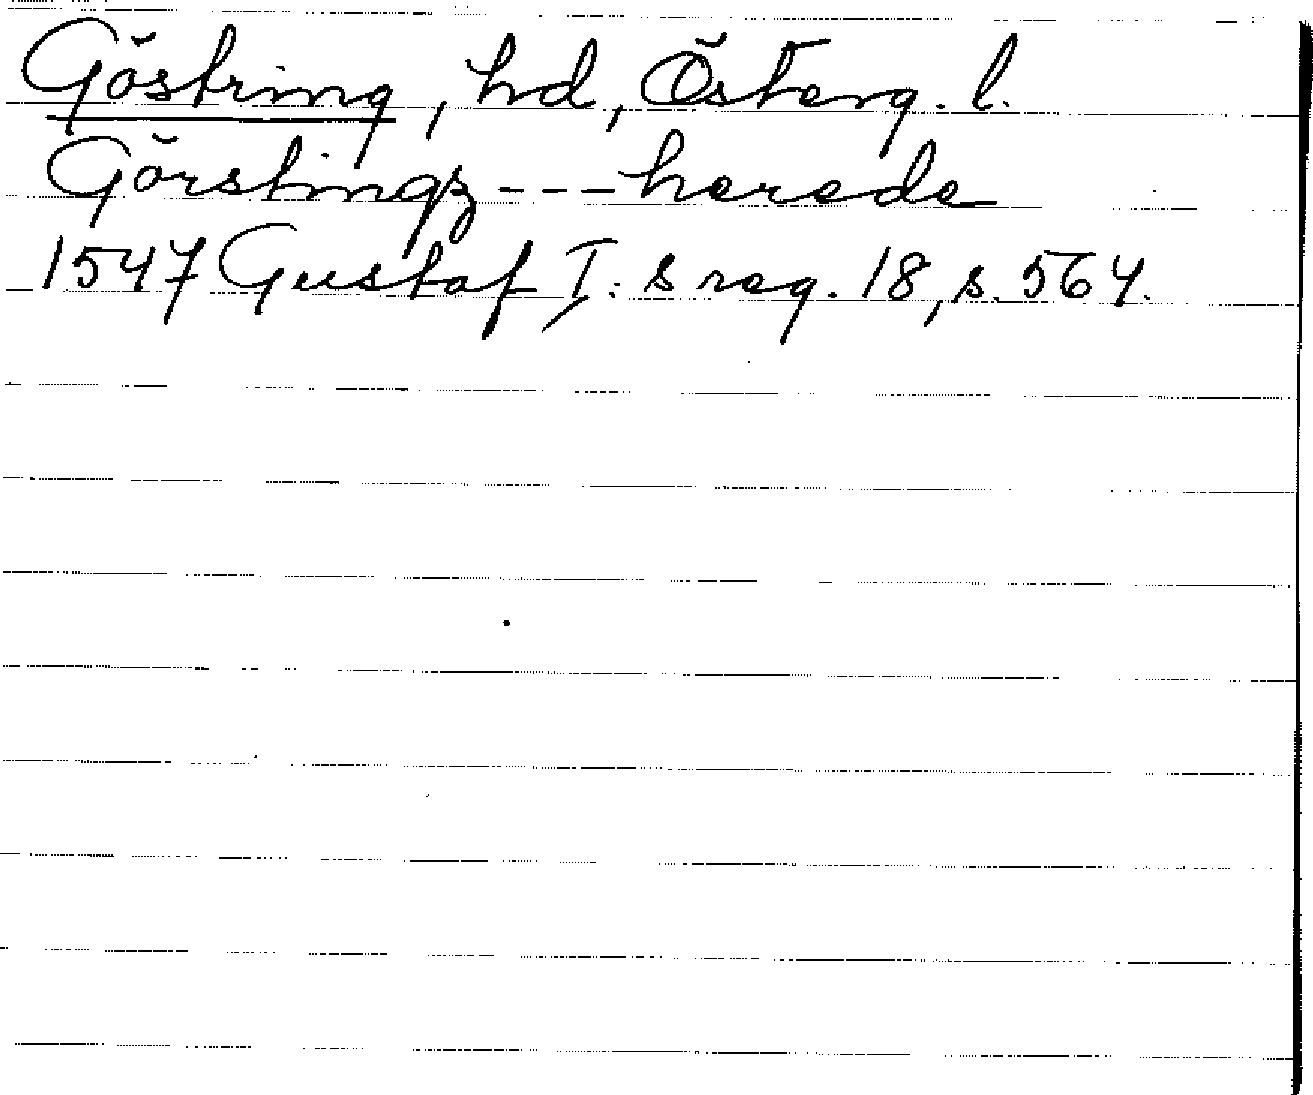 Göstring, hd, Österg. l.
Görstingz --- herede
1547 Gustaf I: s reg. 18, s. 564.